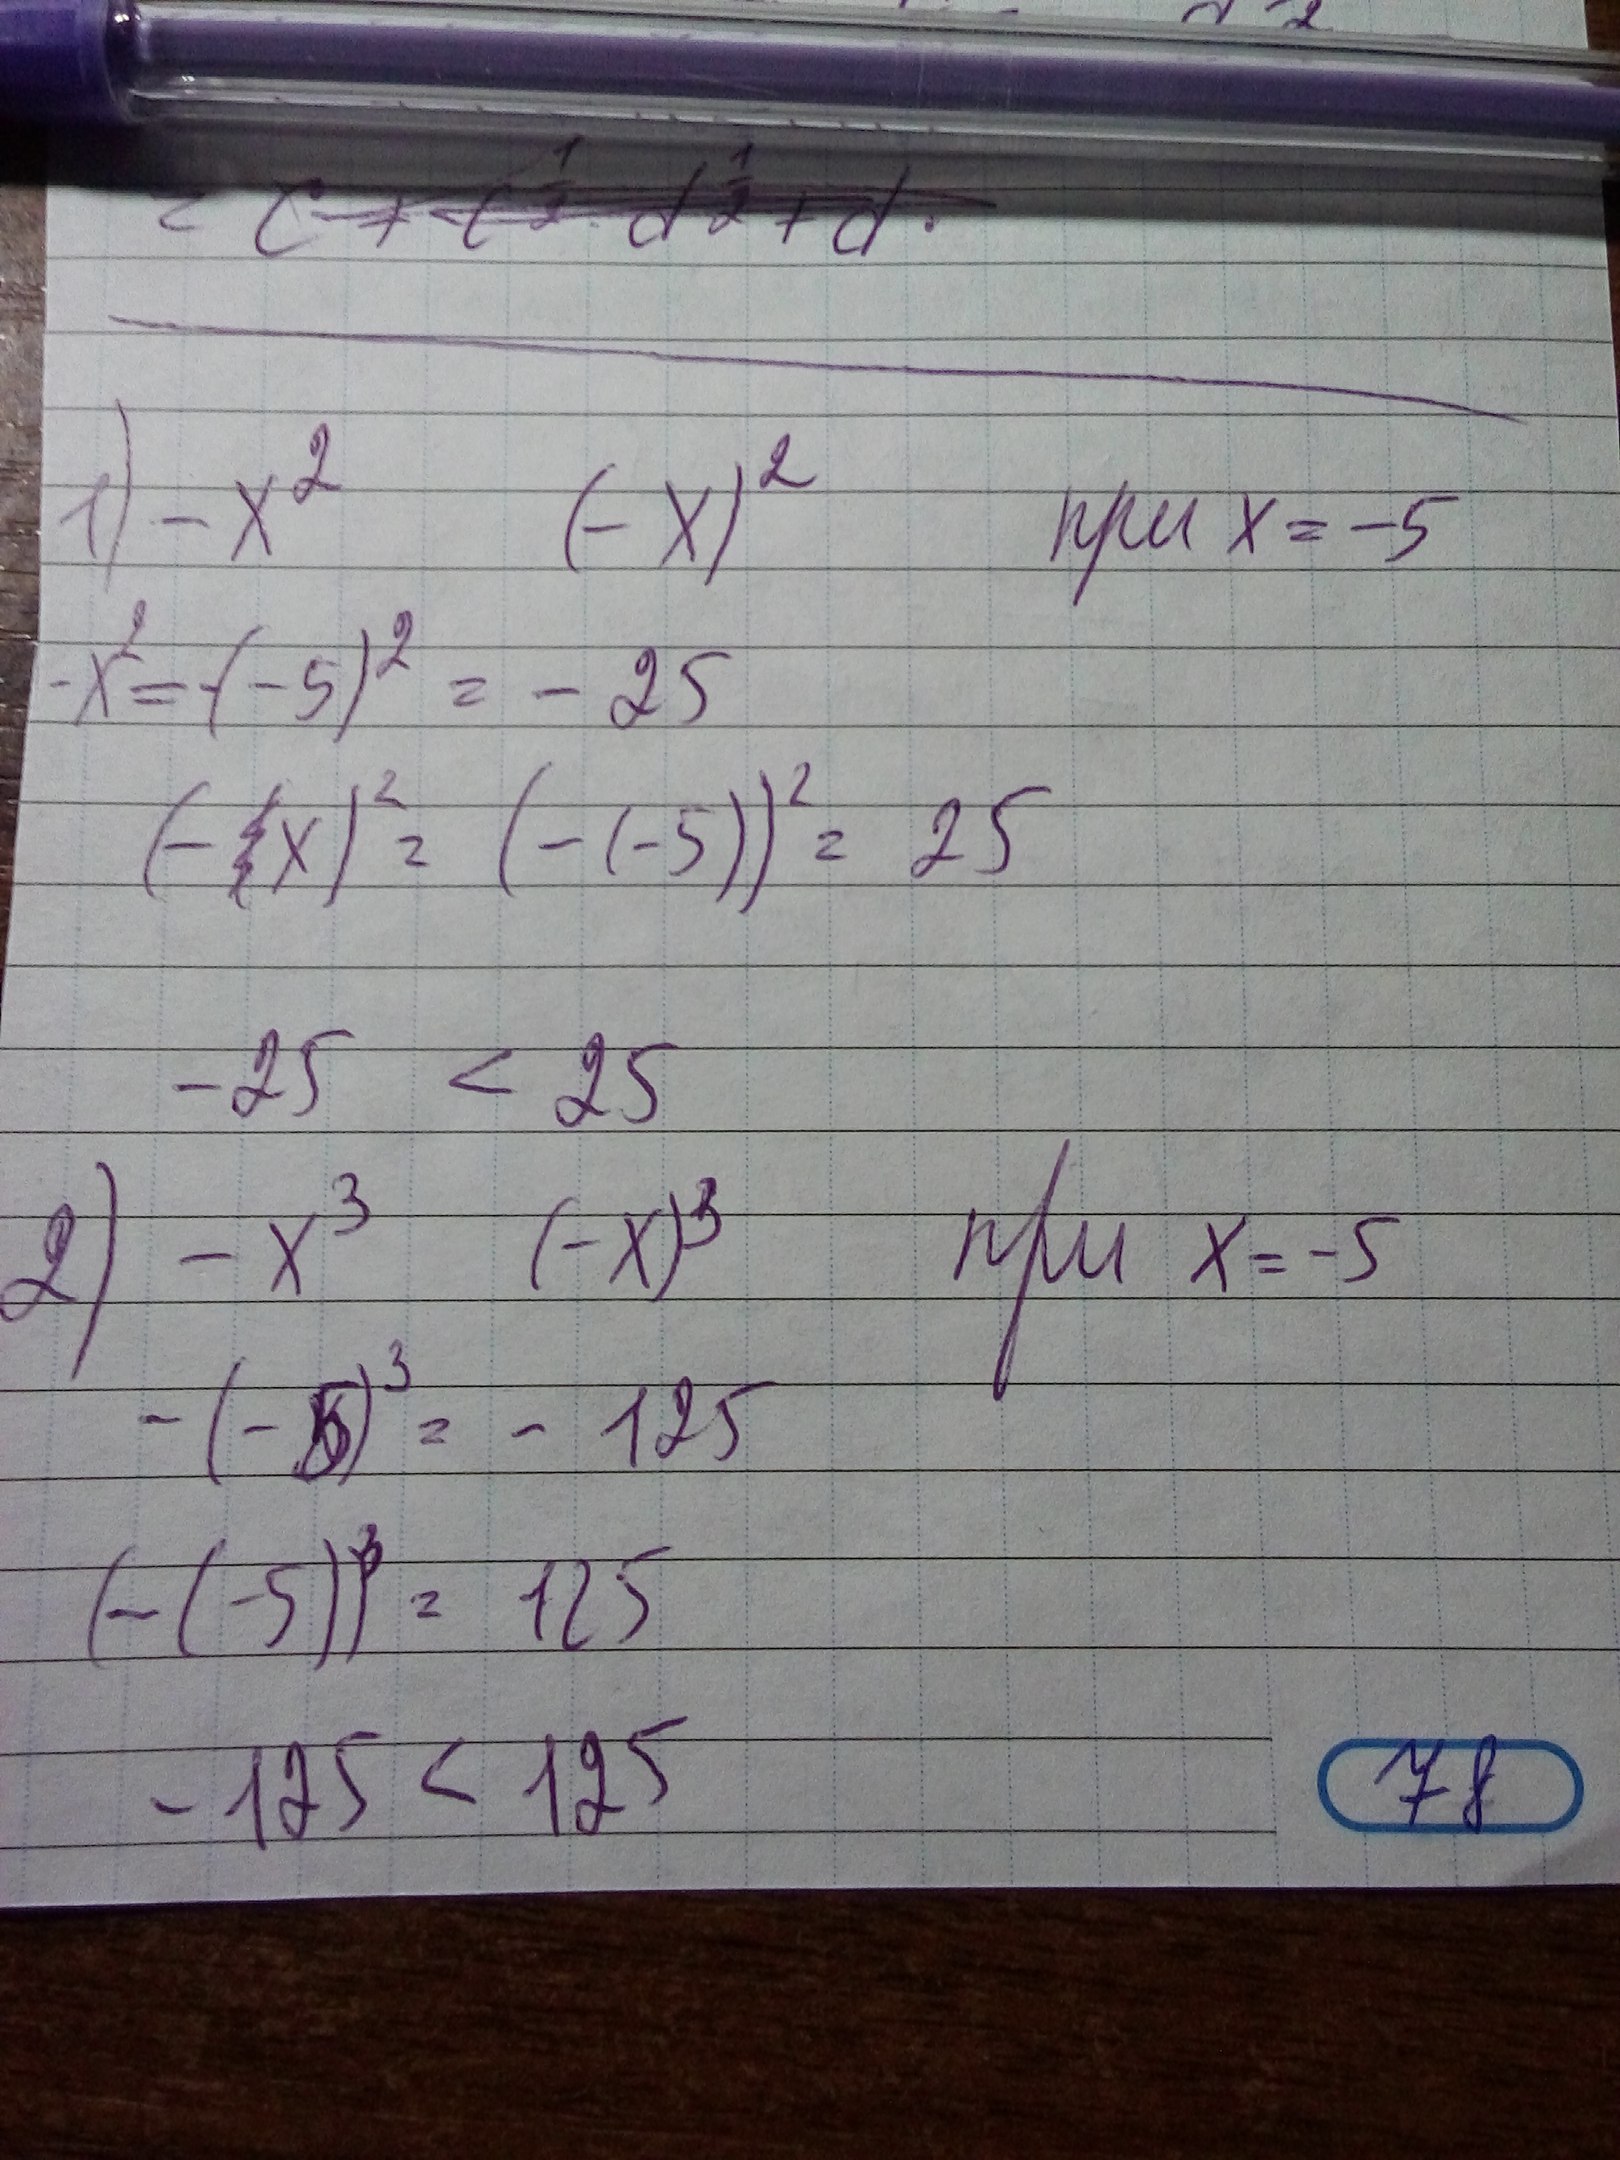 = c + c^{1/2} · d^{1/2} + d.
1) -x² (-x)² при x = -5
-x² = -(-5)² = -25
(-x)² = (-(-5))² = 25
-25 < 25
2) -x³ (-x)³ при x = -5
-(-5)³ = -125
(-(-5))³ = 125
-125 < 125
78